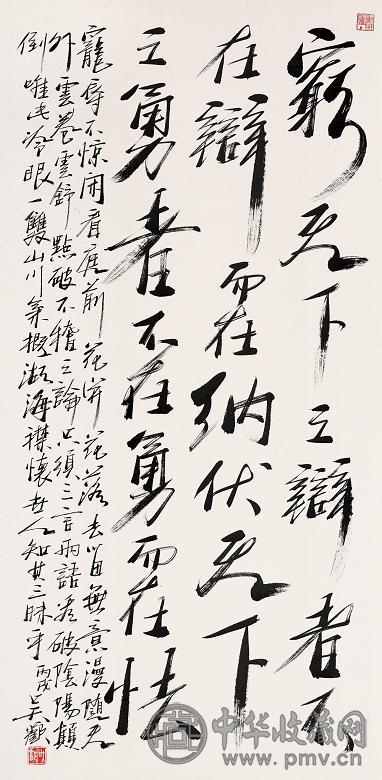 窮天下之辯者不
在辯而在訥伏天下
之勇者不在勇而在怯
寵辱不惊闲看庭前花開花落去留無意漫随天
外雲卷雲舒點破不稽之論只須三言兩語看破陰陽顛
倒唯此冷眼一雙山川氣概湖海襟懷世人知其三昧乎丙戌吴歡
中华收藏网
www.pmv.cn